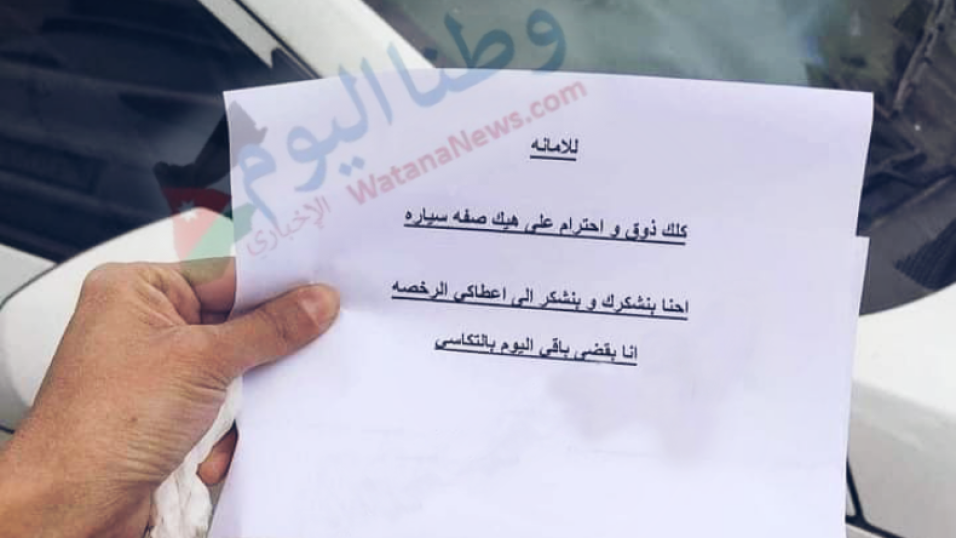 وطنا اليوم
الإخباري WatanaNews.com
للامانه
كلك ذوق و احترام على هيك صفه سياره
احنا بنشكرك و بنشكر الى اعطاكي الرخصه
انا بقضي باقي اليوم بالتكاسي